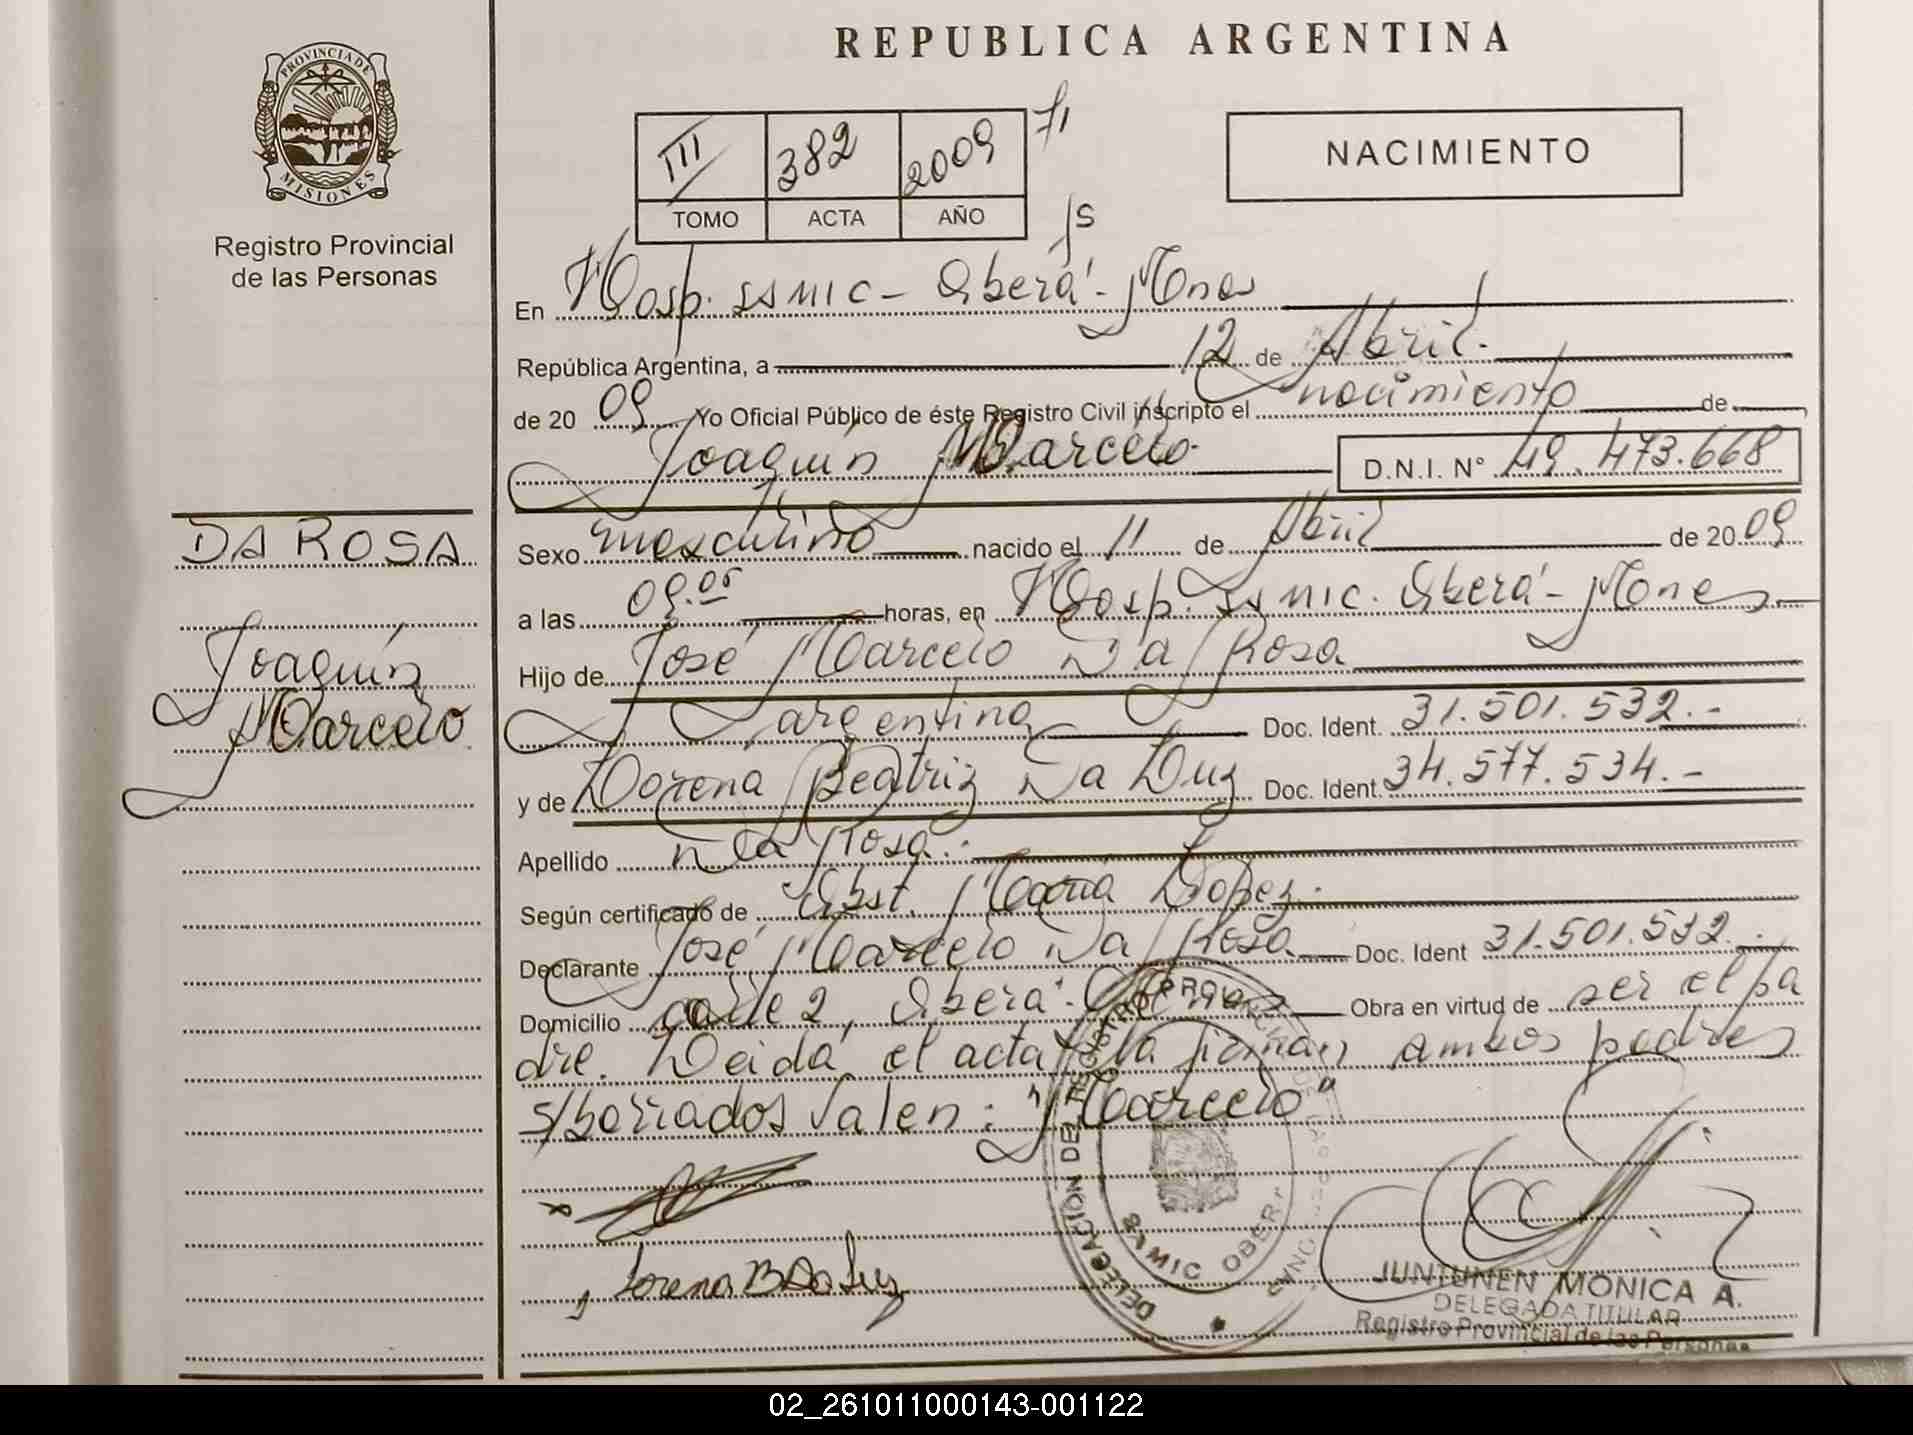 REPUBLICA ARGENTINA
PROVINCIA DE
MISIONES
Registro Provincial
de las Personas
III 382 2009
TOMO ACTA AÑO
NACIMIENTO
En Hosp. SSMIC - Oberá - Mnes
República Argentina, a 12 de Abril.
de 20 09 Yo Oficial Público de éste Registro Civil inscripto el nacimiento de
Joaquín Marcelo.
D.N.I. N° 49.473.668
DA ROSA
Joaquín
Marcelo
Sexo masculino nacido el 11 de Abril de 20 09
a las 09.05 horas, en Hosp. SSMIC. Oberá - Mones
Hijo de José Marcelo Da Rosa
argentina Doc. Ident. 31.501.532.-
y de Lorena Beatriz Da Luz Doc. Ident. 34.577.534.-
Apellido Da Rosa.-
Según certificado de Obst. María Lopez.
Declarante José Marcelo Da Rosa Doc. Ident 31.501.532.-
Domicilio calle 2, Oberá. Obra en virtud de ser el pa
dre. Leida el acta la firman ambos padres
s/borrados Valen: "Marcelo"
Lorena B Da Luz
DELEGACION DEL REGISTRO PROVINCIAL DE LAS PERSONAS
OBERA
JUNTUNEN MONICA A.
DELEGADA TITULAR
Registro Provincial de las Personas
02_261011000143-001122